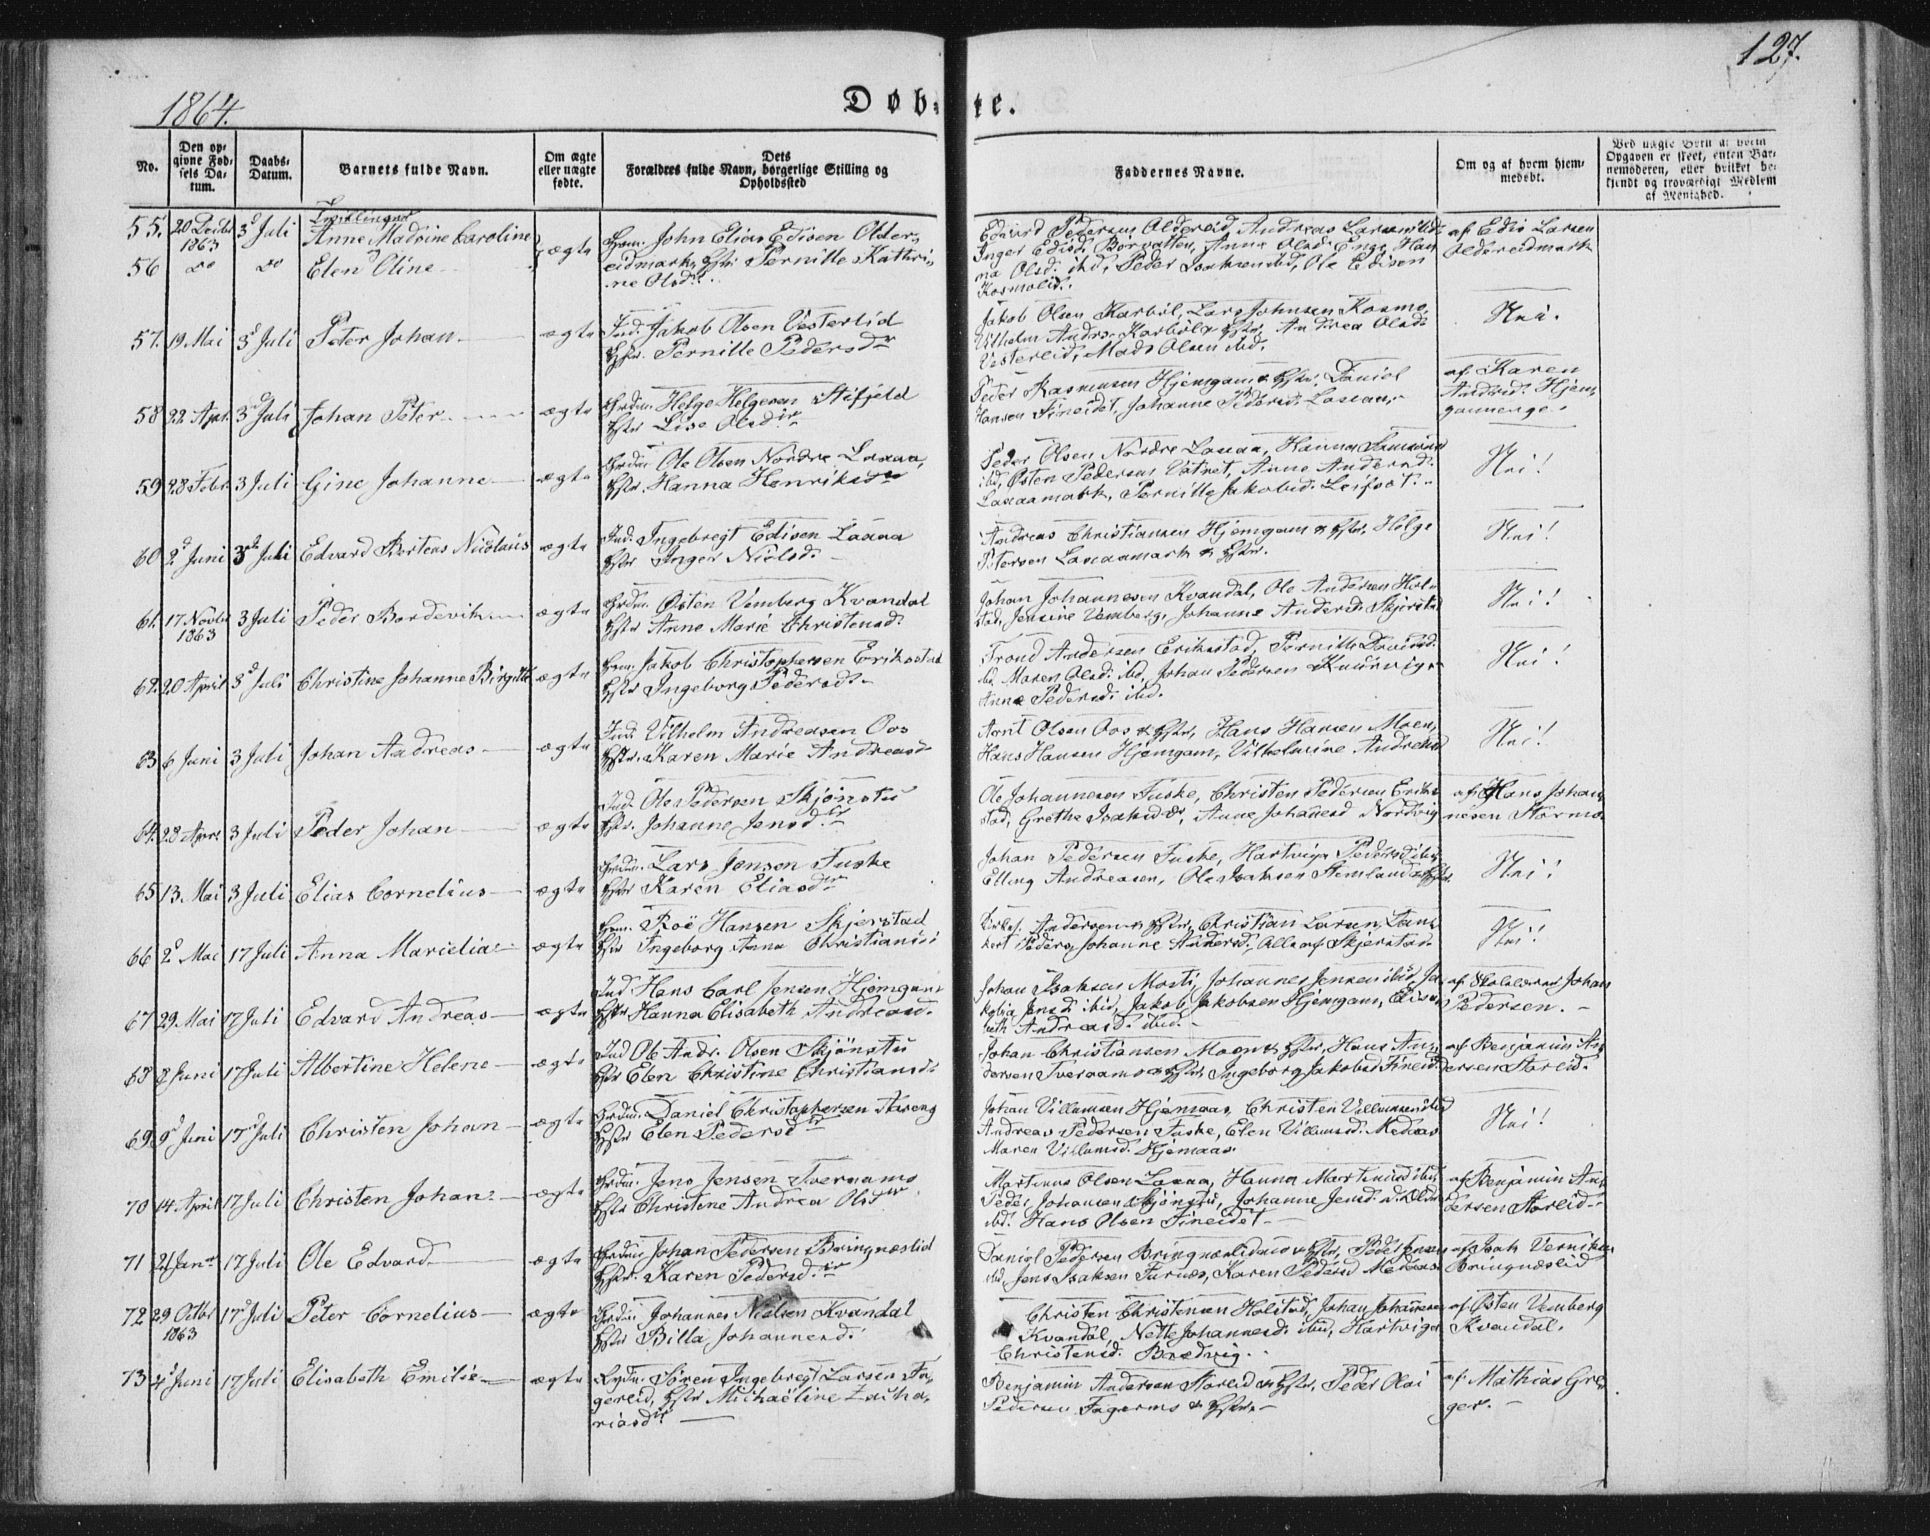 127.
1864.
Døb- te.
No.
Den op-
givne Fød-
sels Da-
tum.
Daabs-
Datum.
Barnets fulde Navn.
Om ægte
eller uægte
fødte.
Dets
Forældres fulde Navn, borgerlige Stilling og
Opholdssted
Faddernes Navne.
Om og af hvem hjem-
medøbt.
Ved uægte Børn at hvem
Opgaven er skeet, enten Bar-
nemoderen, eller hvilket be-
kjendt og troværdigt Medlem
af Menighed.
55. 20 Decbr 1863 3d Juli Tvillinger Anne Madsine Caroline
56 do do Elen Oline
ægte
John Elias Edisen Older-
eidmark, Hstr Pernille Kathri-
ne Olsdr.
Edvard Pedersen Oldereid, Andreas Larsen ibid
Inger Edisd. Børvatten, Anne Olsd. Enge, Han-
na Olsd. ibd, Peder Isaksen ibd, Ole Edisen
Kosmolid.
af Edis Larsen
Oldereidmark
57. 19 Mai 3d Juli Peter Johan ægte
Ind. Jakob Olsen Vesterlid
Hstr. Pernille Pedersdr
Jakob Olsen Karbøl, Lars Johnsen Kosmo,
Vilhelm Andrs. Karbøl & Hstr, Andrea Olsd.
Vesterlid, Mads Olsen ibd.
Nei.
58 22 April 3d Juli Johan Peter ægte
Grdm. Helge Helgesen Stifjeld
Hstr Lise Olsdr
Peder Rasmusen Hjemgam & Hstr, Daniel
Hansen Fineidet, Johanne Pedersd. Laxaa
af Karen
Andrsd. Hjem-
gammenge
59 28 Febr 3 Juli Gine Johanne ægte
Grdm. Ole Olsen Nordre Laxaa,
Hstr. Hanna Henriksdr
Peder Olsen Nordre Laxaa, Hanna
ibd, Østen Pedersen Vatnet, Anne Andersd.
Laxaamark, Pernille Jakobsd. Leifset.
Nei!
60 2d Juni 3d Juli Edvard Berteas Nicolaus ægte
Ind. Ingebregt Edisen Laxaa
Hstr Inger Nielsd.
Andreas Christiansen Hjemgam & Hstr, Helge
Petersen Laxaamark & Hstr.
Nei!
61. 17 Novbr 1863 3d Juli Peder Bordevik ægte
Grdm. Østen Vemberg Kvandal
Hstr Anne Marie Christensd.
Johan Johannesen Kvandal, Ole Andersen Hol-
stad, Jensine Vemberg, Johanne Andersd. Skjerstad
Nei!
62. 20 April 3d Juli Christine Johanne Birgitte ægte
Jakob Christophersen Erikstad
Hstr Ingeborg Pedersd.
Trond Andersen Erikstad, Pernille
ibd, Maren Olsd. ibd, Johan Pedersen
Anne Pedersd. ibd.
Nei!
63 6 Juni 3 Juli Johan Andreas ægte
Ind. Vilhelm Andreasen Oos
Hstr. Karen Marie Andreasd
Arnt Olsen Oos & Hstr, Hans Hansen Moen,
Hans Hansen Hjemgam, Vilhelmine Andreasd
Nei!
64. 28 April 3 Juli Peder Johan ægte
Ind. Ole Pedersen Skjønstu
Hstr. Johanne Jensdr
Ole Johannesen Fuske, Christen Pedersen Erik-
stad, Grethe Isaksdr, Anne Johansd Nordvig
af Hans Johan-
nesen Stormo
65 13. Mai 3 Juli Elias Cornelius ægte
Grdm. Lars Jensen Fuske
Hstr Karen Eliasdr
Johan Pedersen Fuske, Hartviga Pedersd ibd,
Elling Andreasen, Ole Isaksen Stemland & Hstr.
Nei!
66 2d Mai 17 Juli Anna Marielia ægte
Roë Hansen Skjerstad
Hstr Ingeborg Anna Christiansd
Andersen & Hstr, Christian Larsen,
Peders, Johanne Andersd. Alle af Skjerstad.
Nei!
67 29 Mai 17 Juli Edvard Andreas ægte
Ind Hans Carl Jensen Hjemgam
Hstr Hanna Elisabeth Andreasd.
Johan Isaksen Mosti, Johannes Jensen ibid, Ja-
kobia Jensd ibid, Jakob Jakobsen Hjemgam, Elisa-
beth Andreasd. ibid.
af Skolelærer Johan
Pedersen.
68 8 Juni 17 Juli Albertine Helene ægte
Ind Ole Andr. Olsen Skjønstu
Hstr Elen Christine Christiansd.
Johan Christiansen Moen & Hstr, Hans An-
dersen Tveraamo & Hstr, Ingeborg Jakobsd Fineid
af Benjamin An-
dersen Storeid.
69. 9d Juni 17d Juli Christen Johan ægte
Grdm. Daniel Christophersen
Hstr Elen Pedersdr
Johan Villumsen Hjemaas, Christen Villumsen ibd
Andreas Pedersen Fuske, Elen Villumsd. Medaas
Maren Villumsd. Hjemaas
Nei!
70 14 April 17 Juli Christen Johan ægte
Grdm. Jens Jensen Tveraamo
Hstr Christine Andrea Olsdr
Martinus Olsen Laxaa, Hanna Martinusd ibd,
Peder Johansen Skjønstu, Johanne Jensd.
ibd. Hans Olsen Fineidet
af Benjamin An-
dersen Storeid
71 21 Janr 17 Juli Ole Edvard ægte
Grdm. Johan Pedersen Bringnæslid
Hstr. Karen Pedersdr
Daniel Pedersen Bringnæslid & Hstr, Peder Jensen
ibd, Jens Isaksen Furnes, Karen Pedersd Medaas
af Isak
Bringnæslid
72 29 Octbr 1863 17d Juli Peter Cornelius ægte
Grdm. Johannes Nielsen Kvandal
Hstr Billa Johannesd.
Christen Christensen Holstad, Johan Johannesen
Kvandal, Nette Johannesd. ibid, Hartviga
Christensd. Brædvig.
af Østen Vemberg
Kvandal.
73 4d Juni 17 Juli Elisabeth Emilie ægte
Søren Ingebregt Larsen
gereid, Hstr Michaëline Zacha-
riasdr
Benjamin Andersen Storeid & Hstr, Peder Olai
Pedersen Fagermo & Hstr.
af Mathias Gre-
ger.